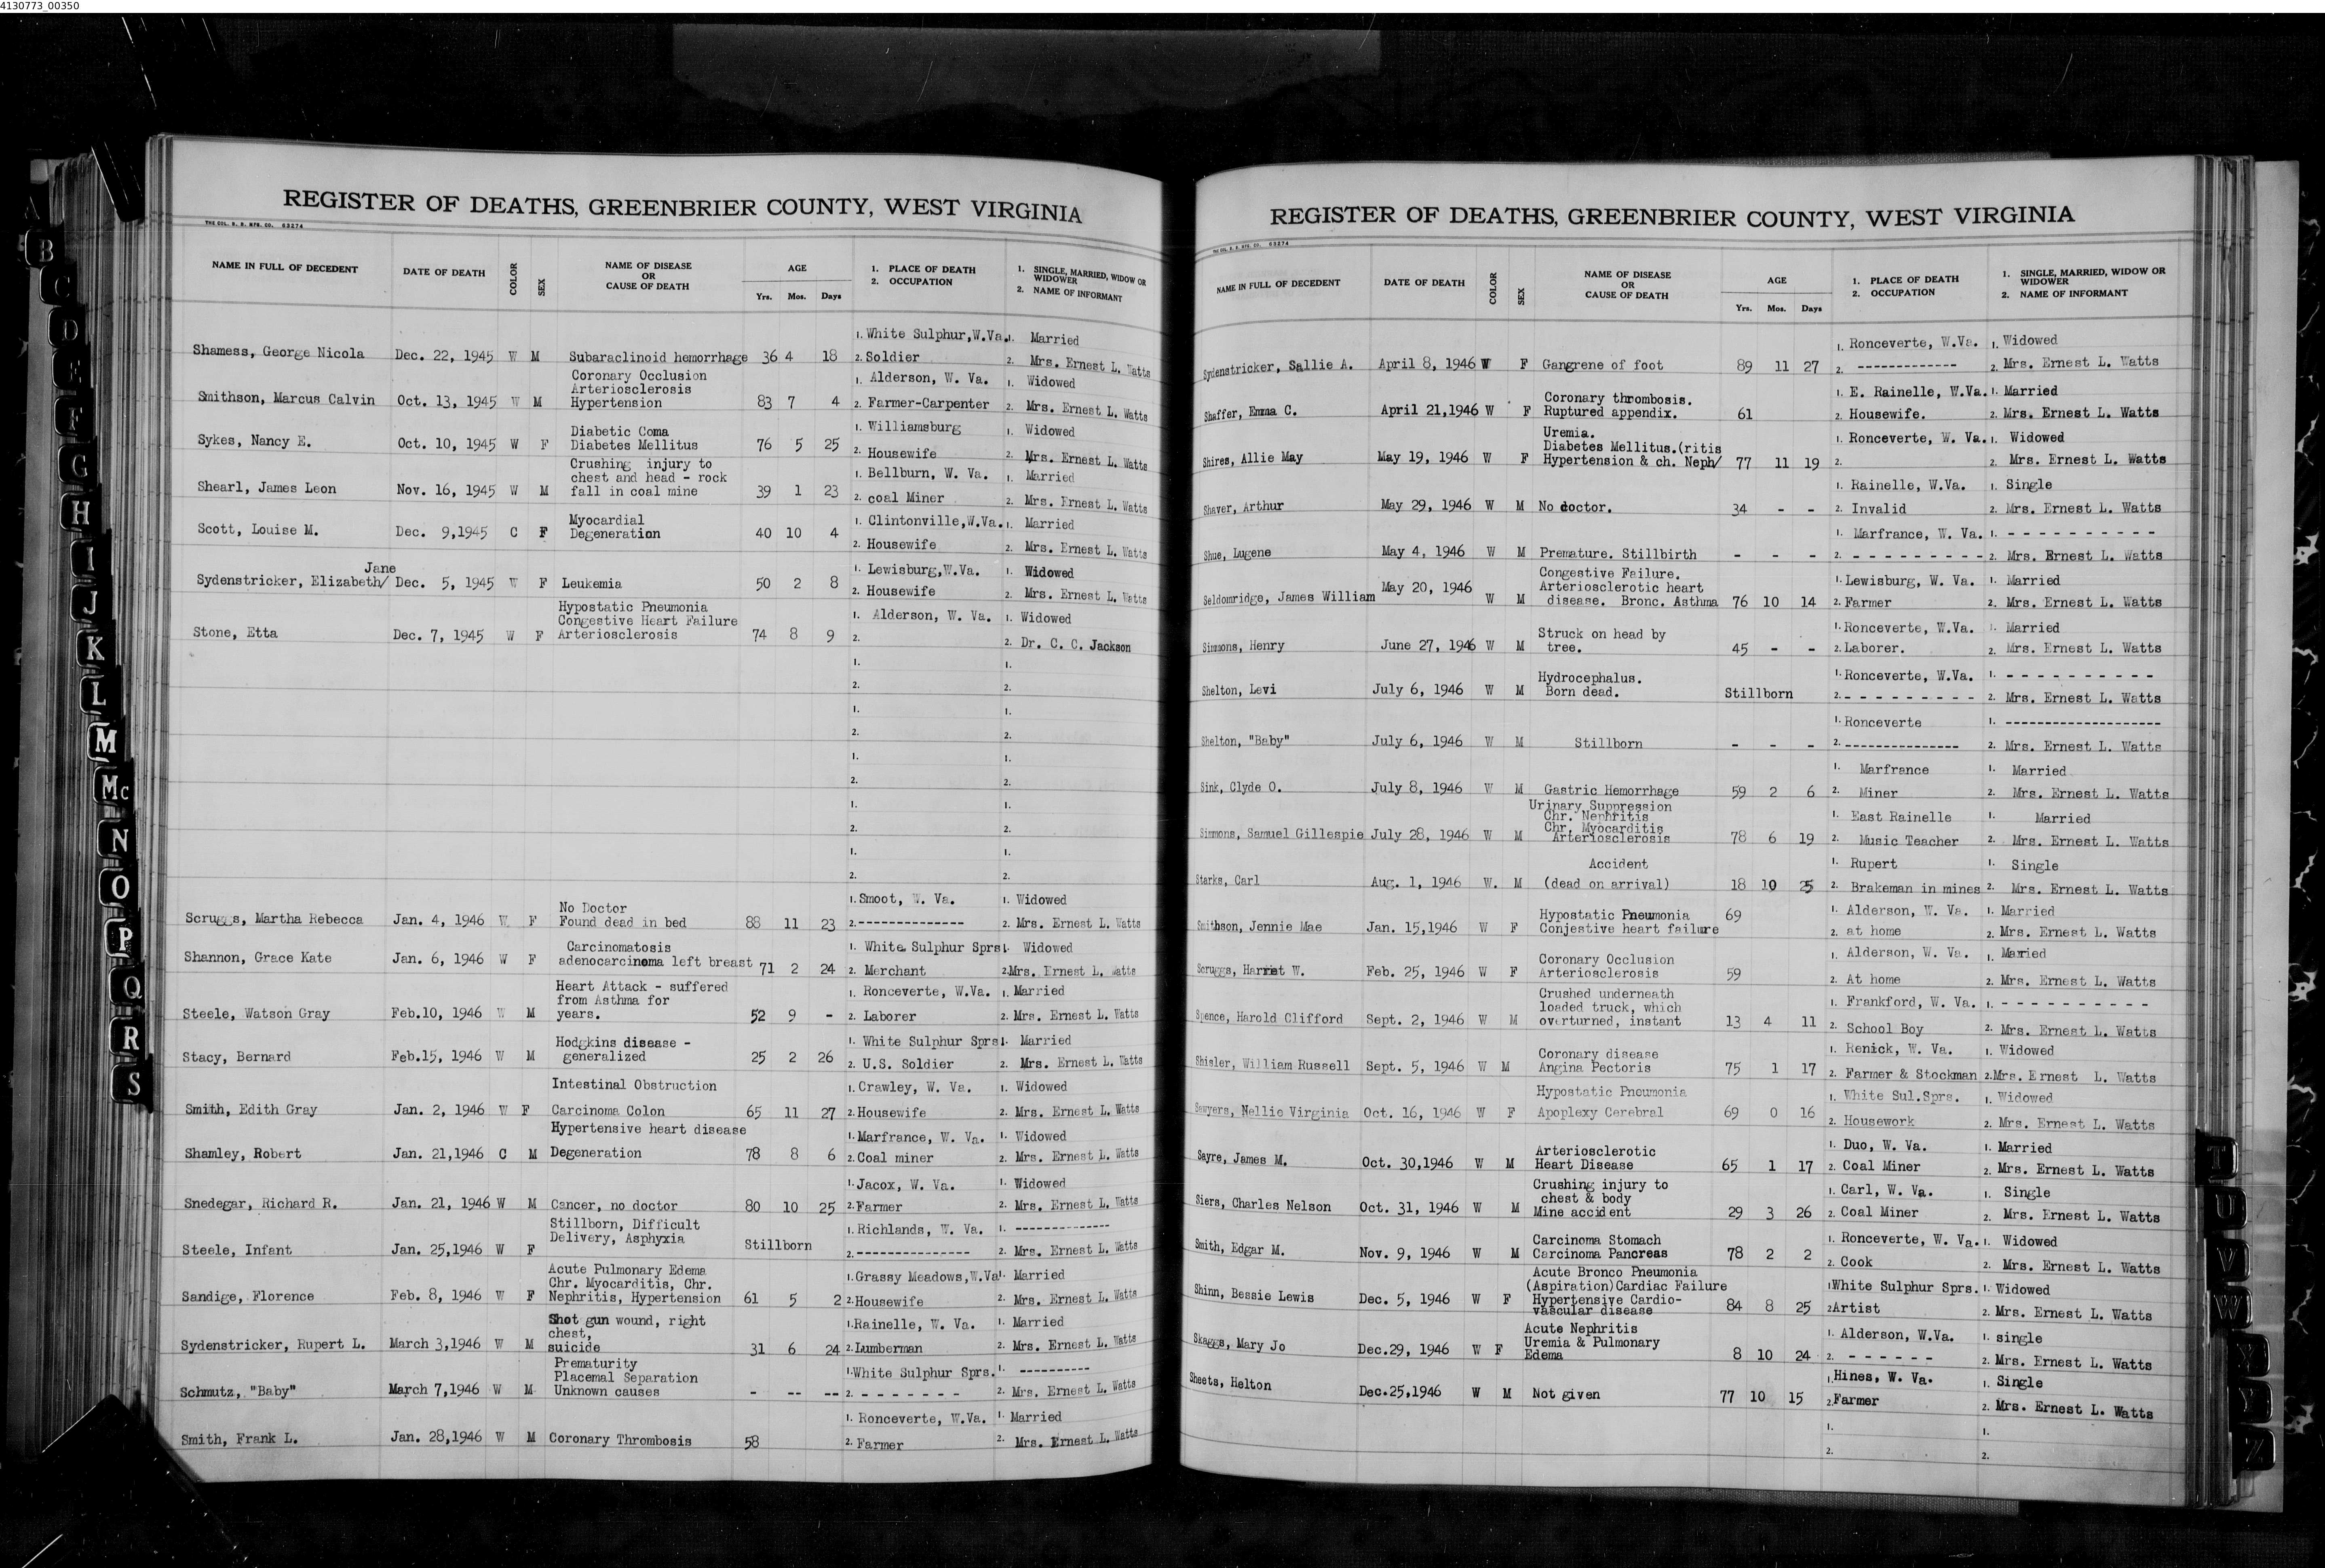 4130773_00350
REGISTER OF DEATHS, GREENBRIER COUNTY, WEST VIRGINIA
THE COL. B. B. MFG. CO. 63274
NAME IN FULL OF DECEDENT DATE OF DEATH COLOR SEX NAME OF DISEASE OR CAUSE OF DEATH AGE Yrs. Mos. Days 1. PLACE OF DEATH 2. OCCUPATION 1. SINGLE, MARRIED, WIDOW OR WIDOWER 2. NAME OF INFORMANT
1. White Sulphur, W.Va. 1. Married
Shamess, George Nicola Dec. 22, 1945 W M Subaraclinoid hemorrhage 36 4 18 2. Soldier 2. Mrs. Ernest L. Watts
Coronary Occlusion 1. Alderson, W. Va. 1. Widowed
Arteriosclerosis
Smithson, Marcus Calvin Oct. 13, 1945 W M Hypertension 83 7 4 2. Farmer-Carpenter 2. Mrs. Ernest L. Watts
Diabetic Coma 1. Williamsburg 1. Widowed
Sykes, Nancy E. Oct. 10, 1945 W F Diabetes Mellitus 76 5 25 2. Housewife 2. Mrs. Ernest L. Watts
Crushing injury to 1. Bellburn, W. Va. 1. Married
chest and head - rock
Shearl, James Leon Nov. 16, 1945 W M fall in coal mine 39 1 23 2. coal Miner 2. Mrs. Ernest L. Watts
Myocardial 1. Clintonville, W.Va. 1. Married
Scott, Louise M. Dec. 9,1945 C F Degeneration 40 10 4 2. Housewife 2. Mrs. Ernest L. Watts
Jane 1. Lewisburg, W.Va. 1. Widowed
Sydenstricker, Elizabeth/ Dec. 5, 1945 W F Leukemia 50 2 8 2. Housewife 2. Mrs. Ernest L. Watts
Hypostatic Pneumonia 1. Alderson, W. Va. 1. Widowed
Congestive Heart Failure
Stone, Etta Dec. 7, 1945 W F Arteriosclerosis 74 8 9 2. 2. Dr. C. C. Jackson
1. 1.
2. 2.
1. 1.
2. 2.
1. 1.
2. 2.
1. 1.
2. 2.
1. 1.
2. 2.
No Doctor 1. Smoot, W. Va. 1. Widowed
Scruggs, Martha Rebecca Jan. 4, 1946 W F Found dead in bed 88 11 23 2. -------------- 2. Mrs. Ernest L. Watts
Carcinomatosis 1. White Sulphur Sprs. 1. Widowed
Shannon, Grace Kate Jan. 6, 1946 W F adenocarcinoma left breast 71 2 24 2. Merchant 2. Mrs. Ernest L. Watts
Heart Attack - suffered 1. Ronceverte, W.Va. 1. Married
from Asthma for
Steele, Watson Gray Feb.10, 1946 W M years. 52 9 - 2. Laborer 2. Mrs. Ernest L. Watts
Hodgkins disease - 1. White Sulphur Sprs. 1. Married
Stacy, Bernard Feb.15, 1946 W M generalized 25 2 26 2. U.S. Soldier 2. Mrs. Ernest L. Watts
Intestinal Obstruction 1. Crawley, W. Va. 1. Widowed
Smith, Edith Gray Jan. 2, 1946 W F Carcinoma Colon 65 11 27 2. Housewife 2. Mrs. Ernest L. Watts
Hypertensive heart disease 1. Marfrance, W. Va. 1. Widowed
Shamley, Robert Jan. 21,1946 C M Degeneration 78 8 6 2. Coal miner 2. Mrs. Ernest L. Watts
1. Jacox, W. Va. 1. Widowed
Snedegar, Richard R. Jan. 21, 1946 W M Cancer, no doctor 80 10 25 2. Farmer 2. Mrs. Ernest L. Watts
Stillborn, Difficult 1. Richlands, W. Va. 1. --------------
Delivery, Asphyxia
Steele, Infant Jan. 25,1946 W F Stillborn 2. --------------- 2. Mrs. Ernest L. Watts
Acute Pulmonary Edema 1. Grassy Meadows, W.Va. 1. Married
Chr. Myocarditis, Chr.
Sandige, Florence Feb. 8, 1946 W F Nephritis, Hypertension 61 5 2 2. Housewife 2. Mrs. Ernest L. Watts
Shot gun wound, right 1. Rainelle, W. Va. 1. Married
chest,
Sydenstricker, Rupert L. March 3,1946 W M suicide 31 6 24 2. Lumberman 2. Mrs. Ernest L. Watts
Prematurity 1. White Sulphur Sprs. 1. ----------
Placemal Separation
Schmutz, "Baby" March 7,1946 W M Unknown causes - -- -- 2. - - - - - - - 2. Mrs. Ernest L. Watts
1. Ronceverte, W.Va. 1. Married
Smith, Frank L. Jan. 28,1946 W M Coronary Thrombosis 58 2. Farmer 2. Mrs. Ernest L. Watts
REGISTER OF DEATHS, GREENBRIER COUNTY, WEST VIRGINIA
THE COL. B. B. MFG. CO. 63274
NAME IN FULL OF DECEDENT DATE OF DEATH COLOR SEX NAME OF DISEASE OR CAUSE OF DEATH AGE Yrs. Mos. Days 1. PLACE OF DEATH 2. OCCUPATION 1. SINGLE, MARRIED, WIDOW OR WIDOWER 2. NAME OF INFORMANT
1. Ronceverte, W.Va. 1. Widowed
Sydenstricker, Sallie A. April 8, 1946 W F Gangrene of foot 89 11 27 2. ------------- 2. Mrs. Ernest L. Watts
Coronary thrombosis. 1. E. Rainelle, W.Va. 1. Married
Shaffer, Emma C. April 21,1946 W F Ruptured appendix. 61 2. Housewife. 2. Mrs. Ernest L. Watts
Uremia. 1. Ronceverte, W. Va. 1. Widowed
Diabetes Mellitus.(ritis
Shires, Allie May May 19, 1946 W F Hypertension & ch. Neph/ 77 11 19 2. 2. Mrs. Ernest L. Watts
1. Rainelle, W.Va. 1. Single
Shaver, Arthur May 29, 1946 W M No doctor. 34 - - 2. Invalid 2. Mrs. Ernest L. Watts
1. Marfrance, W. Va. 1. - - - - - - - - - -
Shue, Lugene May 4, 1946 W M Premature. Stillbirth - - - 2. - - - - - - - - - 2. Mrs. Ernest L. Watts
Congestive Failure. 1. Lewisburg, W. Va. 1. Married
Arteriosclerotic heart
Seldomridge, James William May 20, 1946 W M disease. Bronc. Asthma 76 10 14 2. Farmer 2. Mrs. Ernest L. Watts
Struck on head by 1. Ronceverte, W.Va. 1. Married
Simmons, Henry June 27, 1946 W M tree. 45 - - 2. Laborer. 2. Mrs. Ernest L. Watts
Hydrocephalus. 1. Ronceverte, W.Va. 1. - - - - - - - - - -
Shelton, Levi July 6, 1946 W M Born dead. Stillborn 2. - - - - - - - - - 2. Mrs. Ernest L. Watts
1. Ronceverte 1. -------------------
Shelton, "Baby" July 6, 1946 W M Stillborn - - - 2. -------------- 2. Mrs. Ernest L. Watts
1. Marfrance 1. Married
Sink, Clyde O. July 8, 1946 W M Gastric Hemorrhage 59 2 6 2. Miner 2. Mrs. Ernest L. Watts
Urinary Suppression 1. East Rainelle 1. Married
Chr. Nephritis
Chr. Myocarditis
Simmons, Samuel Gillespie July 28, 1946 W M Arteriosclerosis 78 6 19 2. Music Teacher 2. Mrs. Ernest L. Watts
Accident 1. Rupert 1. Single
Starks, Carl Aug. 1, 1946 W. M (dead on arrival) 18 10 25 2. Brakeman in mines 2. Mrs. Ernest L. Watts
Hypostatic Pneumonia 69 1. Alderson, W. Va. 1. Married
Smithson, Jennie Mae Jan. 15,1946 W F Conjestive heart failure 2. at home 2. Mrs. Ernest L. Watts
Coronary Occlusion 1. Alderson, W. Va. 1. Married
Scruggs, Harriet W. Feb. 25, 1946 W F Arteriosclerosis 59 2. At home 2. Mrs. Ernest L. Watts
Crushed underneath 1. Frankford, W. Va. 1. - - - - - - - - - -
loaded truck, which
Spence, Harold Clifford Sept. 2, 1946 W M overturned, instant 13 4 11 2. School Boy 2. Mrs. Ernest L. Watts
Coronary disease 1. Renick, W. Va. 1. Widowed
Shisler, William Russell Sept. 5, 1946 W M Angina Pectoris 75 1 17 2. Farmer & Stockman 2. Mrs. Ernest L. Watts
Hypostatic Pneumonia 1. White Sul.Sprs. 1. Widowed
Sawyers, Nellie Virginia Oct. 16, 1946 W F Apoplexy Cerebral 69 0 16 2. Housework 2. Mrs. Ernest L. Watts
Arteriosclerotic 1. Duo, W. Va. 1. Married
Sayre, James M. Oct. 30,1946 W M Heart Disease 65 1 17 2. Coal Miner 2. Mrs. Ernest L. Watts
Crushing injury to 1. Carl, W. Va. 1. Single
chest & body
Siers, Charles Nelson Oct. 31, 1946 W M Mine accident 29 3 26 2. Coal Miner 2. Mrs. Ernest L. Watts
Carcinoma Stomach 1. Ronceverte, W. Va. 1. Widowed
Smith, Edgar M. Nov. 9, 1946 W M Carcinoma Pancreas 78 2 2 2. Cook 2. Mrs. Ernest L. Watts
Acute Bronco Pneumonia
(Aspiration)Cardiac Failure 1. White Sulphur Sprs. 1. Widowed
Hypertensive Cardio-
Shinn, Bessie Lewis Dec. 5, 1946 W F vascular disease 84 8 25 2. Artist 2. Mrs. Ernest L. Watts
Acute Nephritis 1. Alderson, W.Va. 1. single
Uremia & Pulmonary
Skaggs, Mary Jo Dec.29, 1946 W F Edema 8 10 24 2. - - - - - - 2. Mrs. Ernest L. Watts
1. Hines, W. Va. 1. Single
Sheets, Helton Dec.25,1946 W M Not given 77 10 15 2. Farmer 2. Mrs. Ernest L. Watts
1. 1.
2. 2.
B
C
D
E
F
G
H
I
J
K
L
M
Mc
N
O
P
Q
R
S
T
U
V
W
X
Y
Z